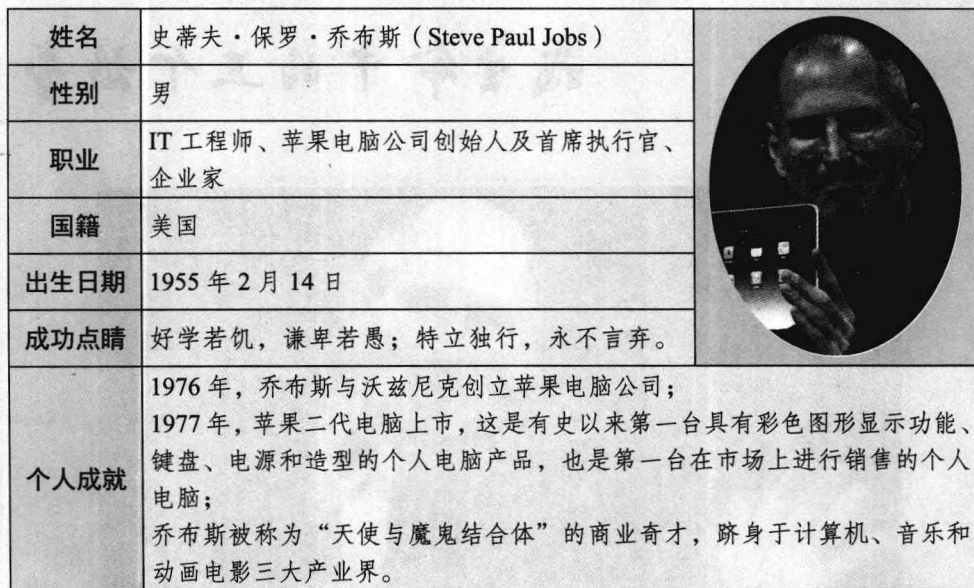 姓名 史蒂夫·保罗·乔布斯（Steve Paul Jobs）
性别 男
职业 IT 工程师、苹果电脑公司创始人及首席执行官、
企业家
国籍 美国
出生日期 1955 年 2 月 14 日
成功点睛 好学若饥，谦卑若愚；特立独行，永不言弃。
个人成就 1976 年，乔布斯与沃兹尼克创立苹果电脑公司；
1977 年，苹果二代电脑上市，这是有史以来第一台具有彩色图形显示功能、
键盘、电源和造型的个人电脑产品，也是第一台在市场上进行销售的个人
电脑；
乔布斯被称为“天使与魔鬼结合体”的商业奇才，跻身于计算机、音乐和
动画电影三大产业界。